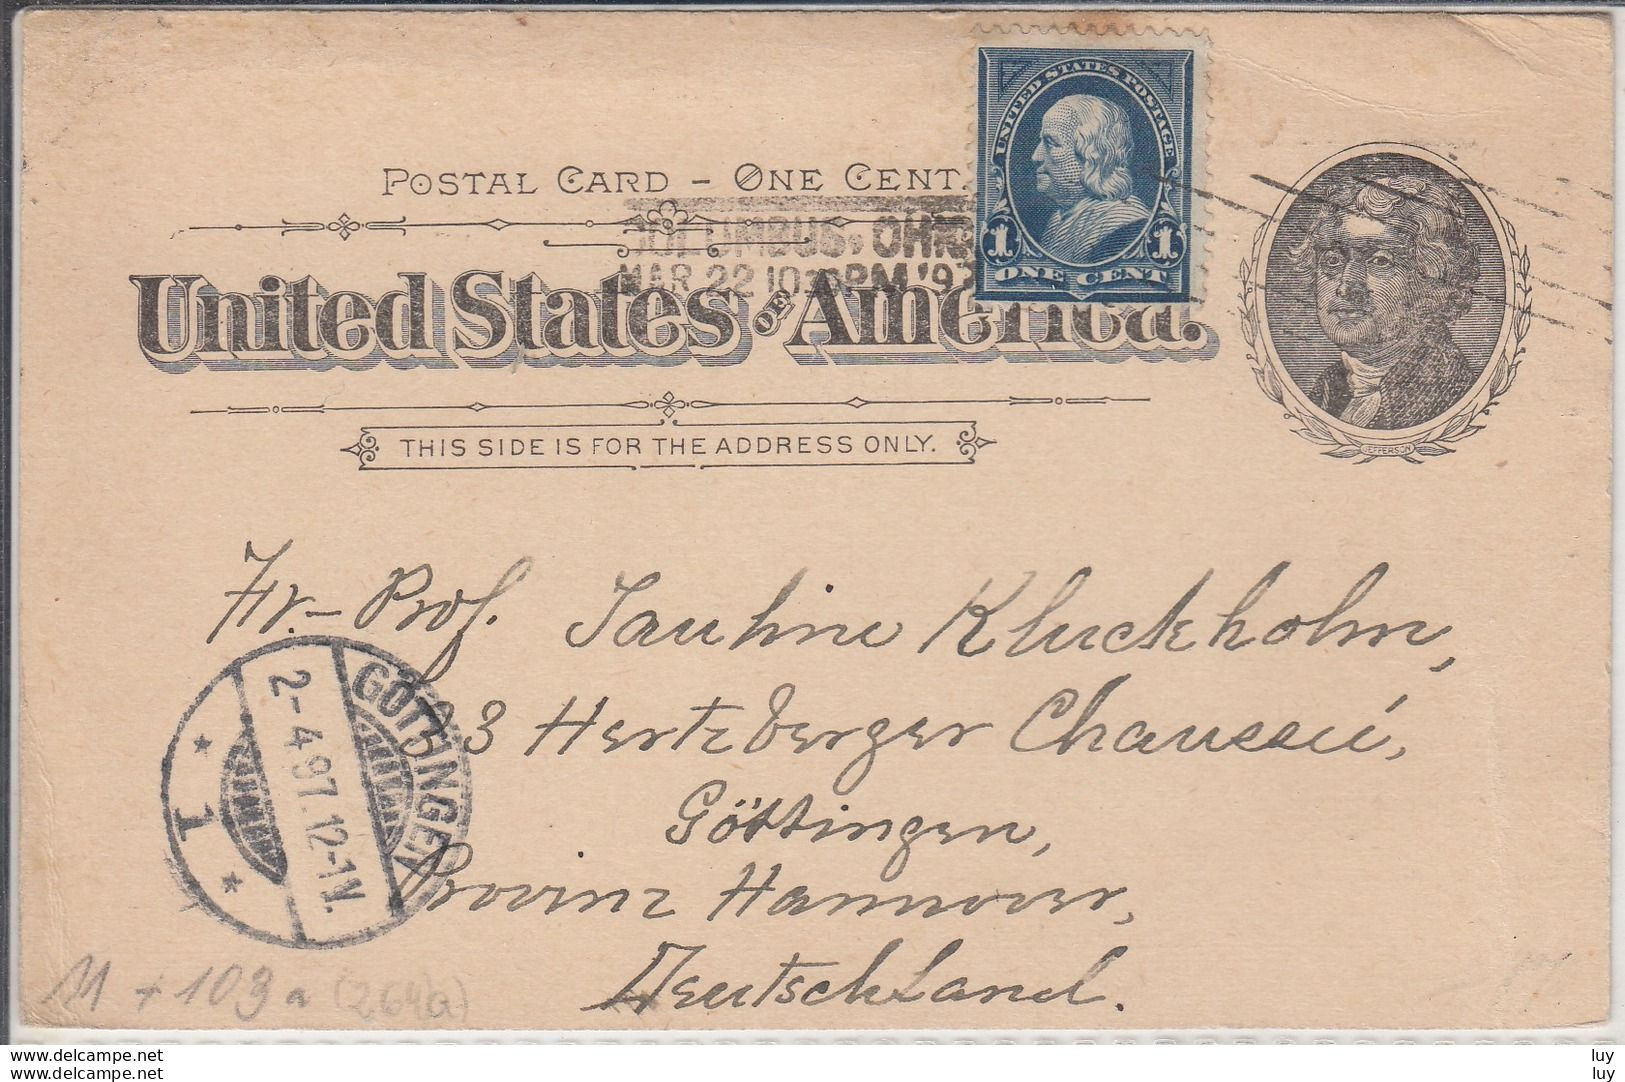 UNITED STATES POSTAGE
1 1
ONE CENT
POSTAL CARD – ONE CENT.
COLUMBUS, OHIO
MAR 22 10 30 PM '97
United States OF America.
JEFFERSON
THIS SIDE IS FOR THE ADDRESS ONLY.
Fr.- Prof. Pauline Kluckhohn,
33 Hertzberger Chaussee,
Göttingen,
Provinz Hannover,
Deutschland.
GÖTTINGEN
2-4.97.12-1N.
* 1 *
11 + 109 a (264a)
www.delcampe.net luy
www.delcampe.net luy